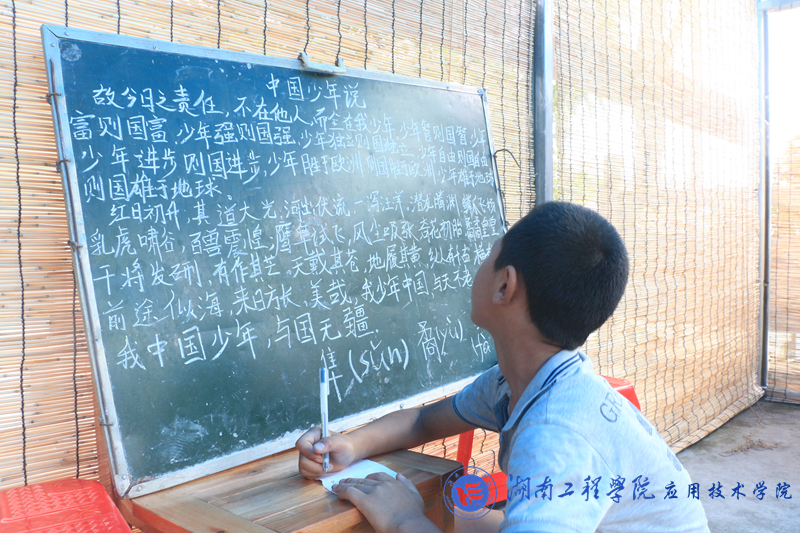 中国少年说
故今日之责任，不在他人，而全在我少年，少年智则国智，少年
富则国富，少年强则国强，少年独立则国独立，少年自由则国自由
少年进步则国进步，少年胜于欧洲则国胜于欧洲，少年雄于地球
则国雄于地球。
红日初升，其道大光，河出伏流，一泻汪洋，潜龙腾渊，鳞
乳虎啸谷，百兽震惶，鹰隼试飞，风尘吸张，奇花初胎，矞矞皇皇
干将发硎，有作其芒，天戴其苍，地履其黄，纵有千古，横
前途似海，来日方长，美哉，我少年中国，与天不老
我中国少年，与国无疆。
隼(sǔn) 矞(yù)
湖南工程学院 应用技术学院